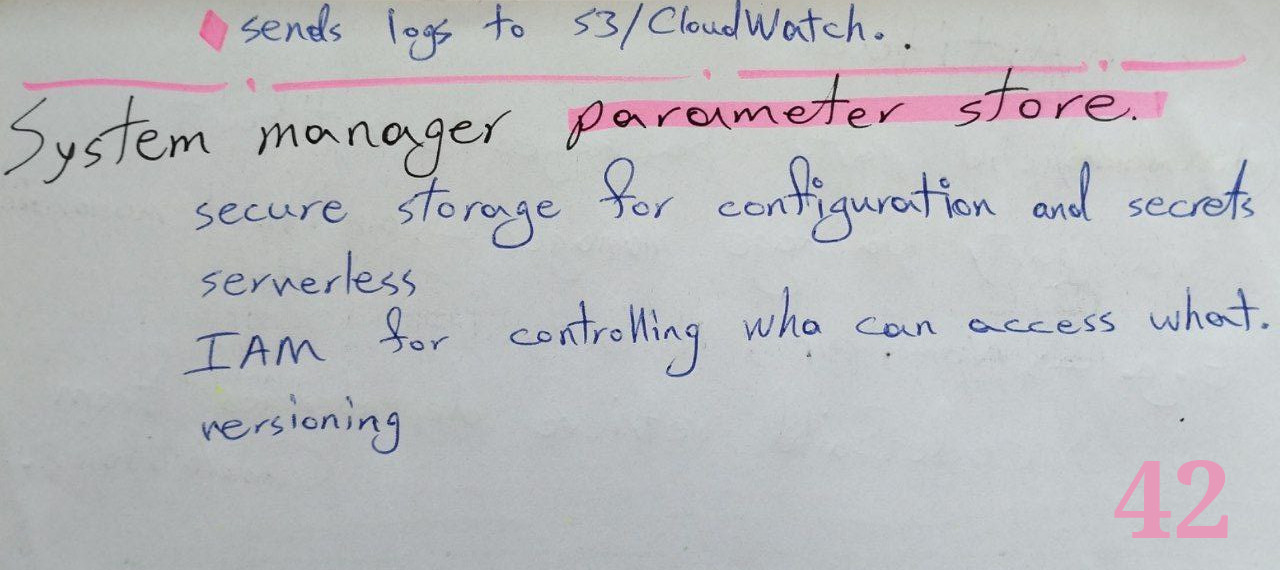 sends logs to S3/CloudWatch..
System manager parameter store.
secure storage for configuration and secrets
serverless
IAM for controlling who can access what.
versioning
42